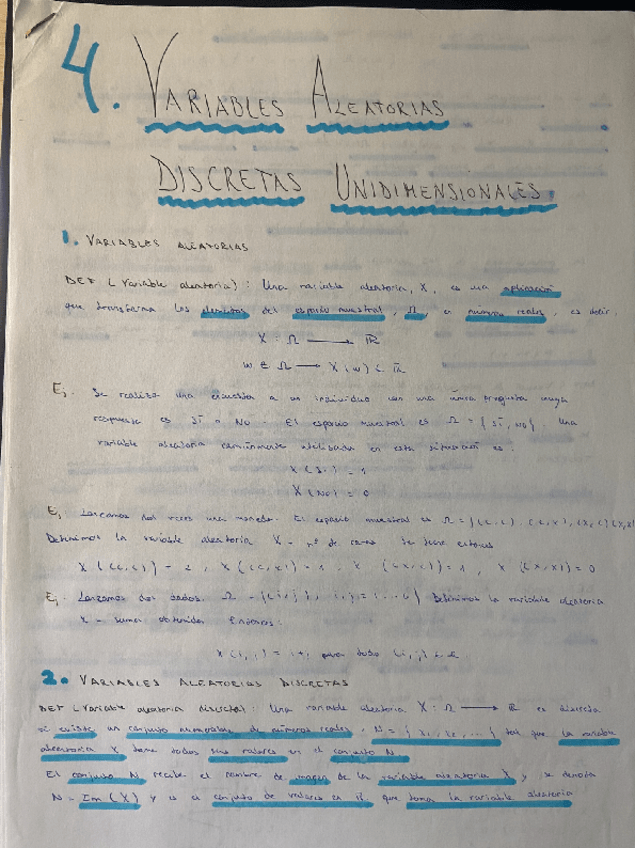 4. VARIABLES ALEATORIAS
DISCRETAS UNIDIMENSIONALES.
1. VARIABLES ALEATORIAS
DEF (Variable aleatoria): Una variable aleatoria, X, es una aplicación
que transforma los elementos del espacio muestral, Ω, en números reales, es decir,
X : Ω → ℝ
w ∈ Ω → X(w) ∈ ℝ
Ej. Se realiza una encuesta a un individuo con una única pregunta cuya
respuesta es SÍ o NO. El espacio muestral es Ω = {SÍ, NO}. Una
variable aleatoria comúnmente utilizada en esta situación es:
X(SÍ) = 1
X(NO) = 0
Ej. Lanzamos dos veces una moneda. El espacio muestral es Ω = {(C,C), (C,X), (X,C), (X,X)
Definimos la variable aleatoria X = nº de caras. Se tiene entonces
X((C,C)) = 2, X((C,X)) = 1, X((X,C)) = 1, X((X,X)) = 0
Ej. Lanzamos dos dados. Ω = {(i,j), i,j = 1...6} Definimos la variable aleatoria
X = suma obtenida. Entonces:
X(i,j) = i+j para todo (i,j) ∈ Ω
2. VARIABLES ALEATORIAS DISCRETAS
DEF (Variable aleatoria discreta): Una variable aleatoria X : Ω → ℝ es discreta
si existe un conjunto numerable de números reales, N = {x1, x2, ...} tal que la variable
aleatoria X tiene todos sus valores en el conjunto N.
El conjunto N recibe el nombre de imagen de la variable aleatoria X y se denota
N = Im(X) y es el conjunto de valores en ℝ que toma la variable aleatoria